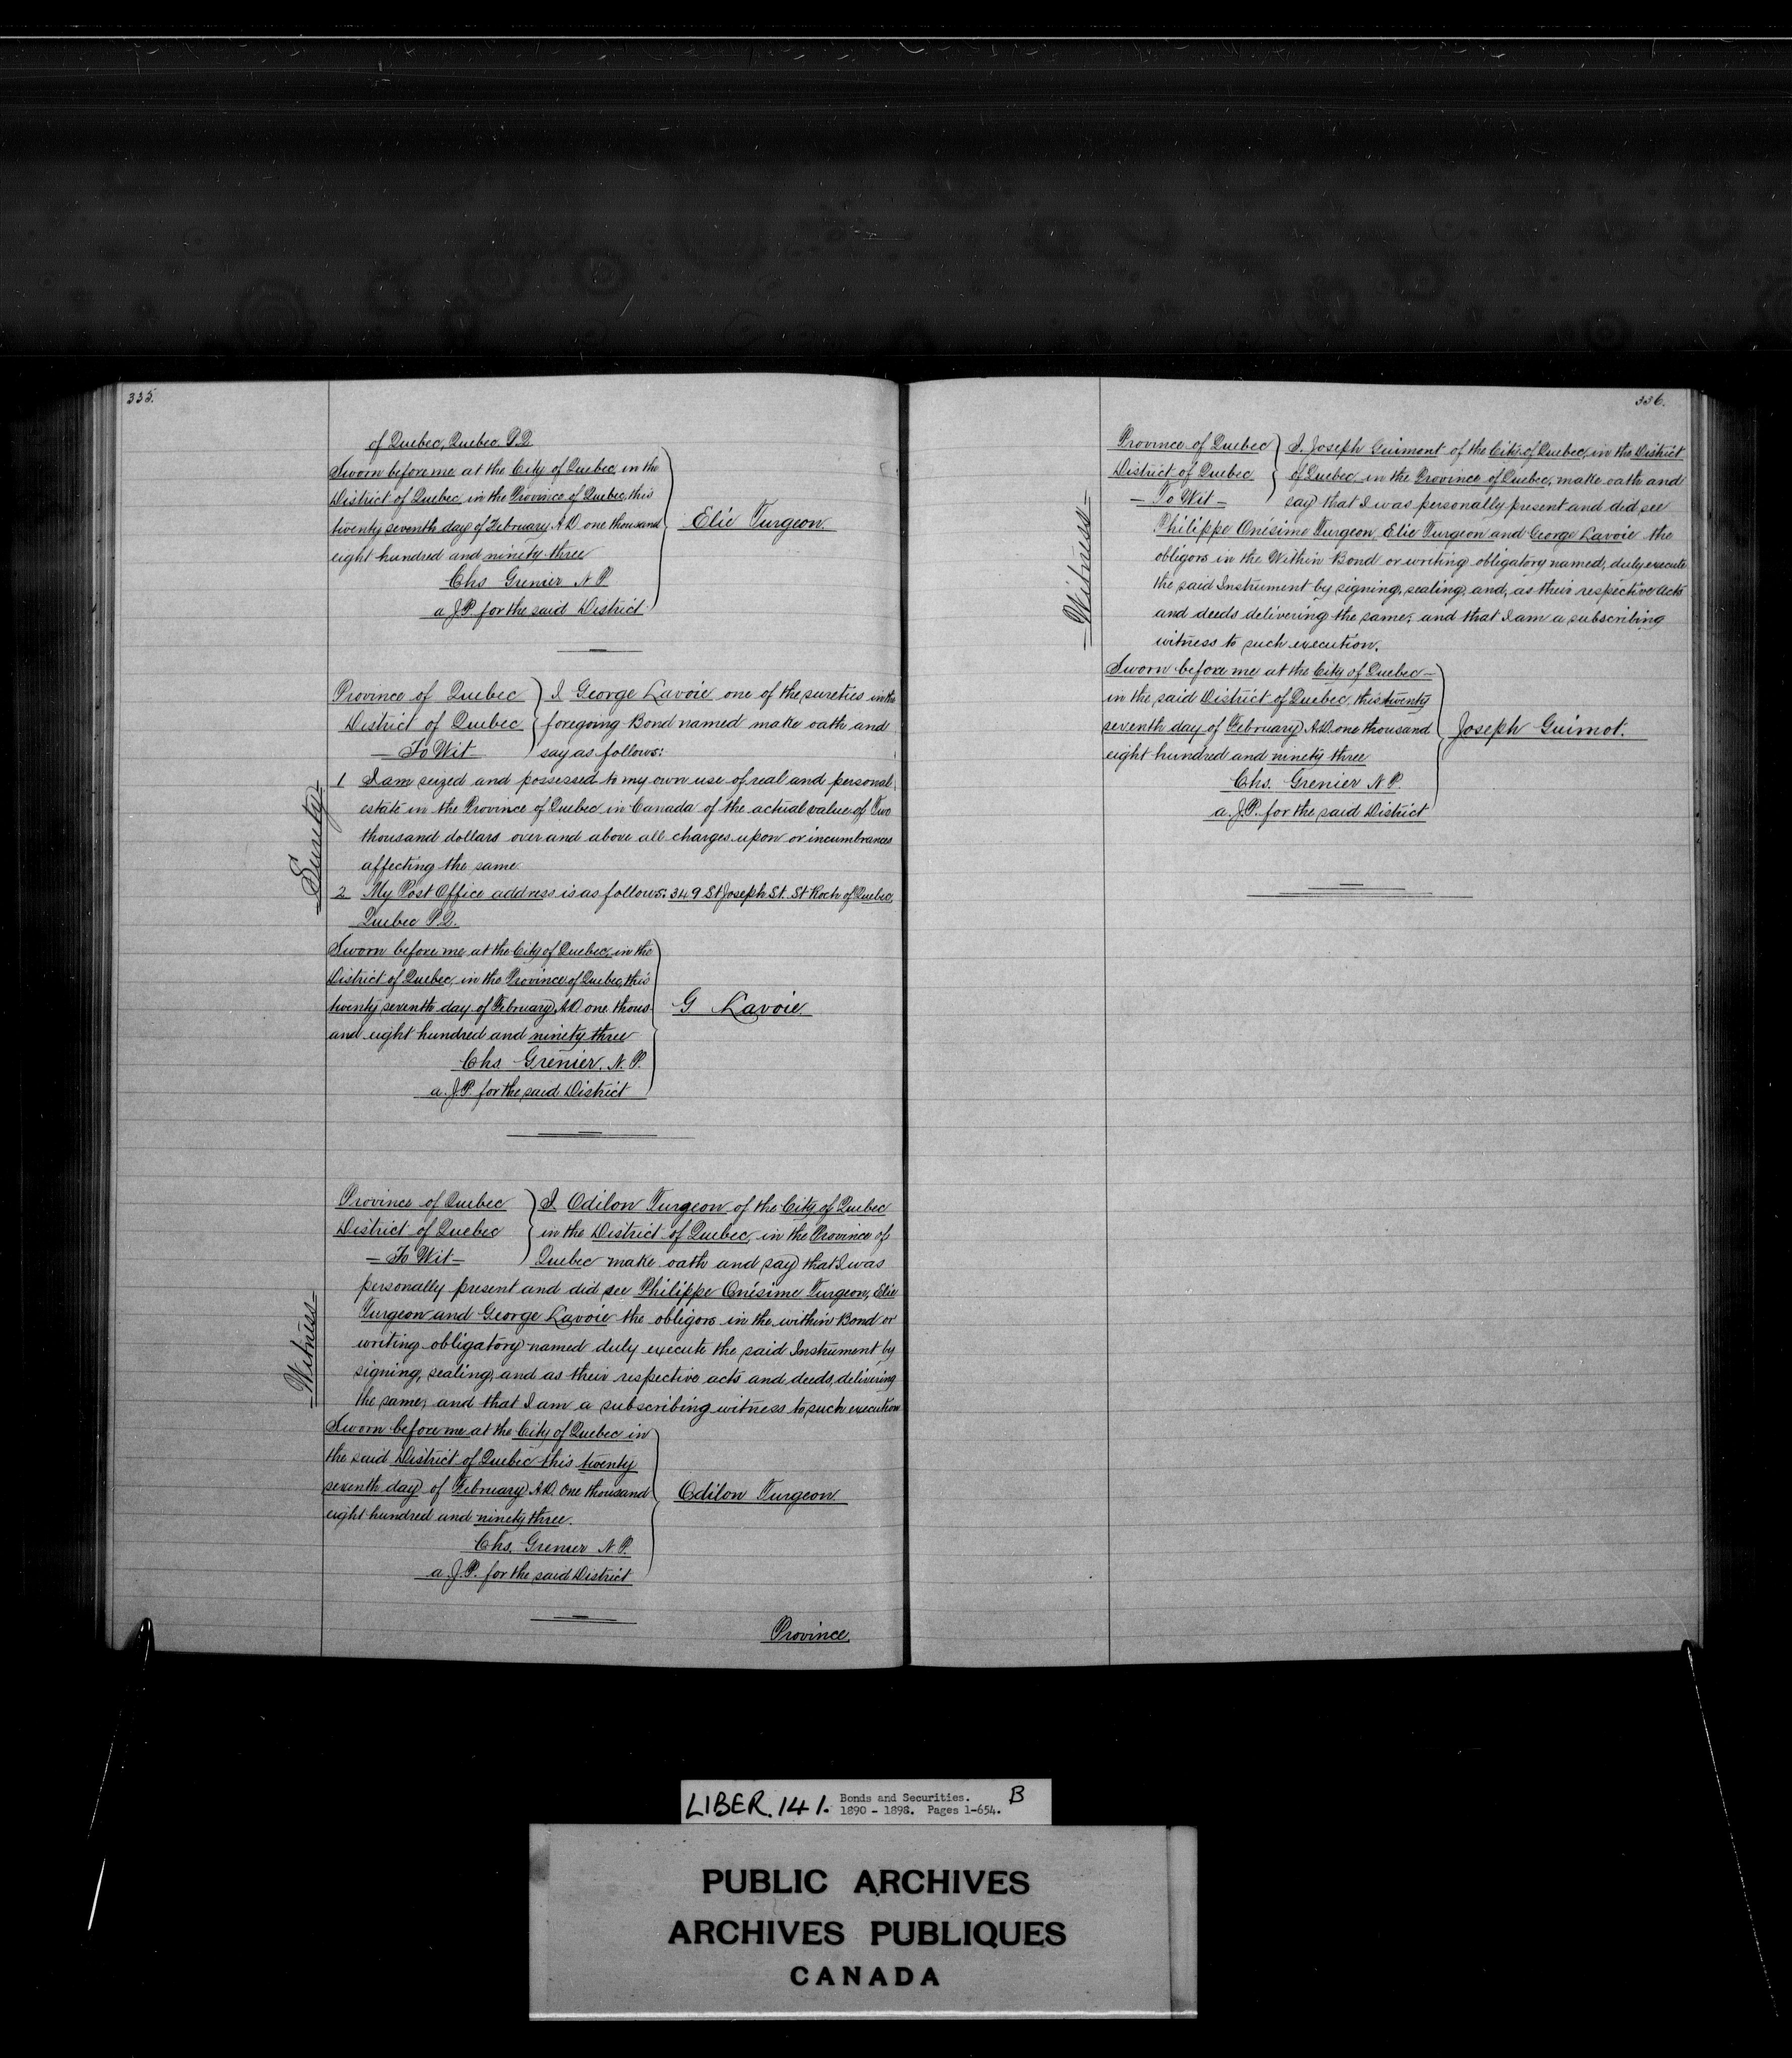 335.
of Quebec, Quebec P.Q.
Sworn before me at the City of Quebec, in the
District of Quebec in the Province of Quebec, this
twenty seventh day of February A.D. one thousand
eight hundred and ninety three
Chs Grenier N.P.
a J.P. for the said District.
Elie Turgeon
Province of Quebec
District of Quebec
To Wit
I George Lavoie one of the sureties in the
foregoing Bond named make oath and
say as follows:
Surety
1 I am seized and possessed to my own use of real and personal
estate in the Province of Quebec in Canada of the actual value of Two
thousand dollars over and above all charges upon or incumbrances
affecting the same
2 My Post Office address is as follows: 349 St Joseph St. St Roch of Quebec,
Quebec P.Q.
Sworn before me at the City of Quebec, in the
District of Quebec, in the Province of Quebec, this
twenty seventh day of February, A.D. one thous-
and eight hundred and ninety three
Chs. Grenier. N.P.
a. J.P. for the said District
G Lavoie
Province of Quebec
District of Quebec
- To Wit -
I Odilon Turgeon of the City of Quebec
in the District of Quebec, in the Province of
Quebec make oath and say that I was
Witness
personally present and did see Philippe Onésime Turgeon, Elie
Turgeon and George Lavoie the obligors in the within Bond or
writing obligatory named duly execute the said Instrument by
signing, sealing, and as their respective acts and deeds, delivering
the same; and that I am a subscribing witness to such execution
Sworn before me at the City of Quebec in
the said District of Quebec this twenty
seventh day of February A.D. One thousand
eight hundred and ninety three.
Chs. Grenier N.P.
a. J.P. for the said District
Odilon Turgeon
Province
336.
Province of Quebec
District of Quebec
- To Wit -
I, Joseph Guimont of the City of Quebec, in the District
of Quebec in the Province of Quebec, make oath and
say that I was personally present and did see
Witness
Philippe Onésime Turgeon, Elie Turgeon and George Lavoie the
obligors in the Within Bond or writing obligatory named, duly execute
the said Instrument by signing, sealing, and, as their respective acts
and deeds delivering the same; and that I am a subscribing
witness to such execution.
Sworn before me at the City of Quebec -
in the said District of Quebec, this twenty
seventh day of February A.D. one thousand
eight hundred and ninety three
Chs. Grenier N.P.
a. J.P. for the said District
Joseph Guimot.
LIBER. 141. Bonds and Securities. B
1890 - 1898. Pages 1-654.
PUBLIC ARCHIVES
ARCHIVES PUBLIQUES
CANADA